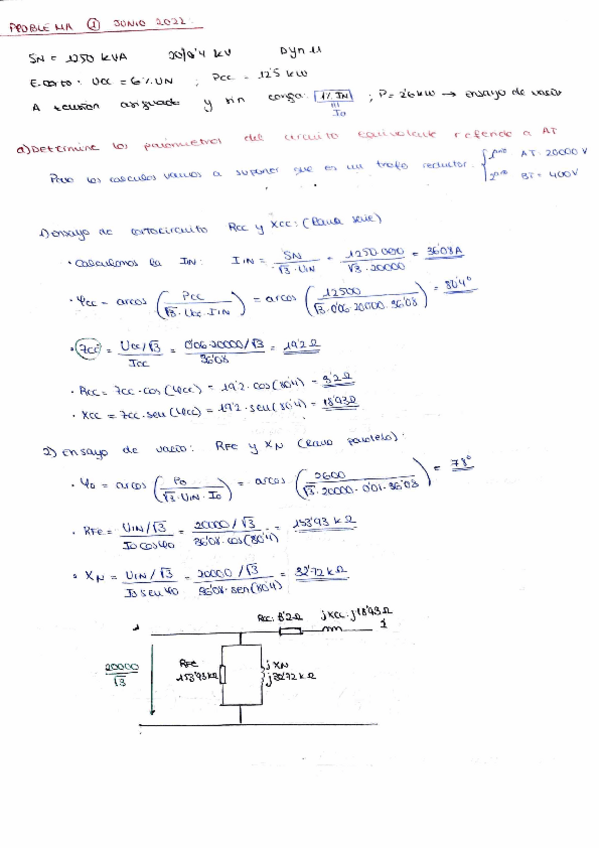 PROBLEMA ① JUNIO 2022
SN = 1250 KVA 20/0'4 KV Dyn 11
E. corto: Ucc = 6% UN ; Pcc = 12'5 kW
A tensión asignada y sin carga: 1% IN ; P = 2'6 kW → ensayo de vacío
I0
a) Determine los parámetros del circuito equivalente referido a AT
Para los cálculos vamos a suponer que es un trafo reductor. AT: 20000 V
BT = 400V
1) ensayo de cortocircuito Rcc y Xcc: (Rama serie)
• Calculamos la IN: I1N = SN / √3 · U1N = 1250000 / √3 · 20000 = 36'08 A
• φcc = arcos (Pcc / √3 · Ucc · I1N) = arcos (12500 / √3 · 0'06 · 20000 · 36'08) = 80'4°
• Zcc = Ucc/√3 / Icc = 0'06 · 20000/√3 / 36'08 = 19'2 Ω
• Rcc = Zcc · cos(φcc) = 19'2 · cos(80'4) = 3'2 Ω
• Xcc = Zcc · sen(φcc) = 19'2 · sen(80'4) = 18'93 Ω
2) Ensayo de vacío: RFE y XN (rama paralelo):
• φ0 = arcos (P0 / √3 · U1N · I0) = arcos (2600 / √3 · 20000 · 0'01 · 36'08) = 78°
• RFE = U1N/√3 / I0 cos φ0 = 20000/√3 / 36'08 · cos(80'4) = 153'93 k Ω
• XN = U1N/√3 / I0 sen φ0 = 20000/√3 / 36'08 · sen(80'4) = 32'72 k Ω
Rcc: 3'2 Ω jXcc: j18'93 Ω
20000 / √3
RFE
153'93 k Ω
jXN
j32'72 k Ω